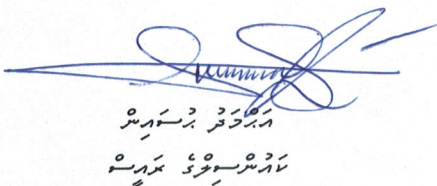 އަޙްމަދު ޙުސައިން
ކައުންސިލްގެ ރައީސް